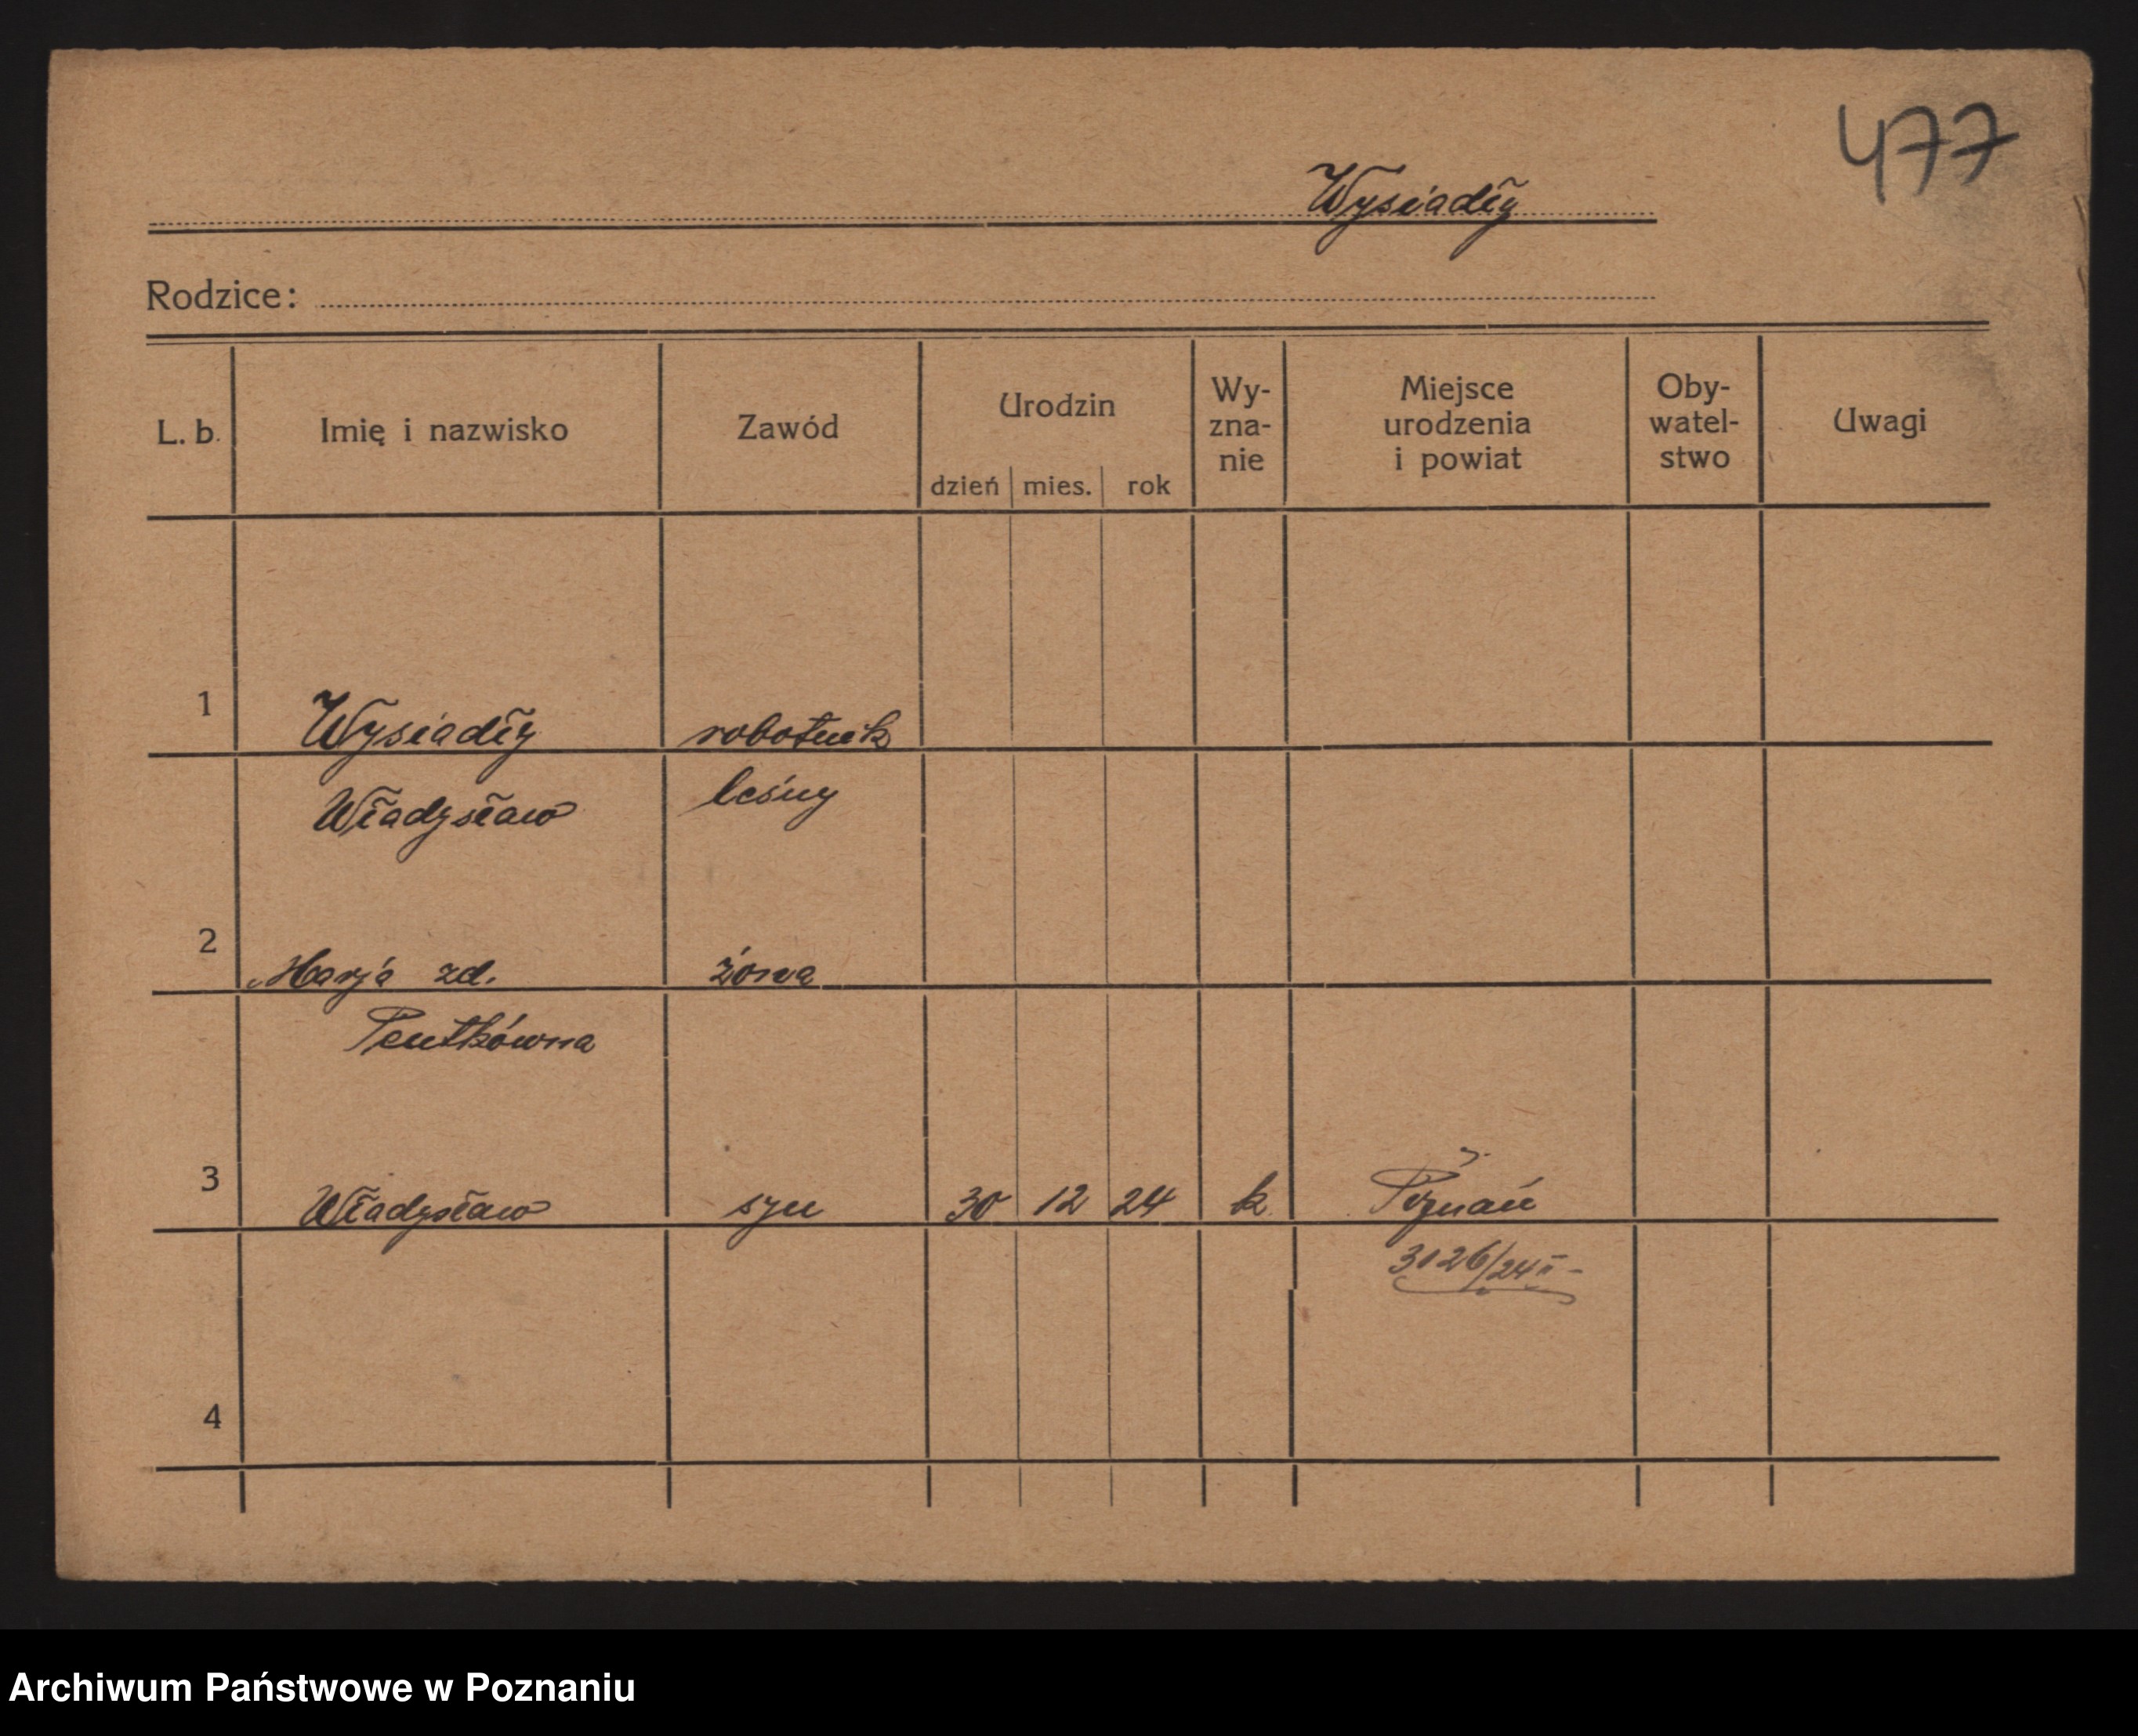 477
Wysiadły
Rodzice:
L. b. Imię i nazwisko Zawód Urodzin dzień mies. rok Wy- zna- nie Miejsce urodzenia i powiat Oby- watel- stwo Uwagi
1 Wysiadły robotnik
Władysław leśny
2 Marja zd. żona
Pentkówna
3 Władysław syn 30 12 24 k Poznań
3126/24 II
4
Archiwum Państwowe w Poznaniu